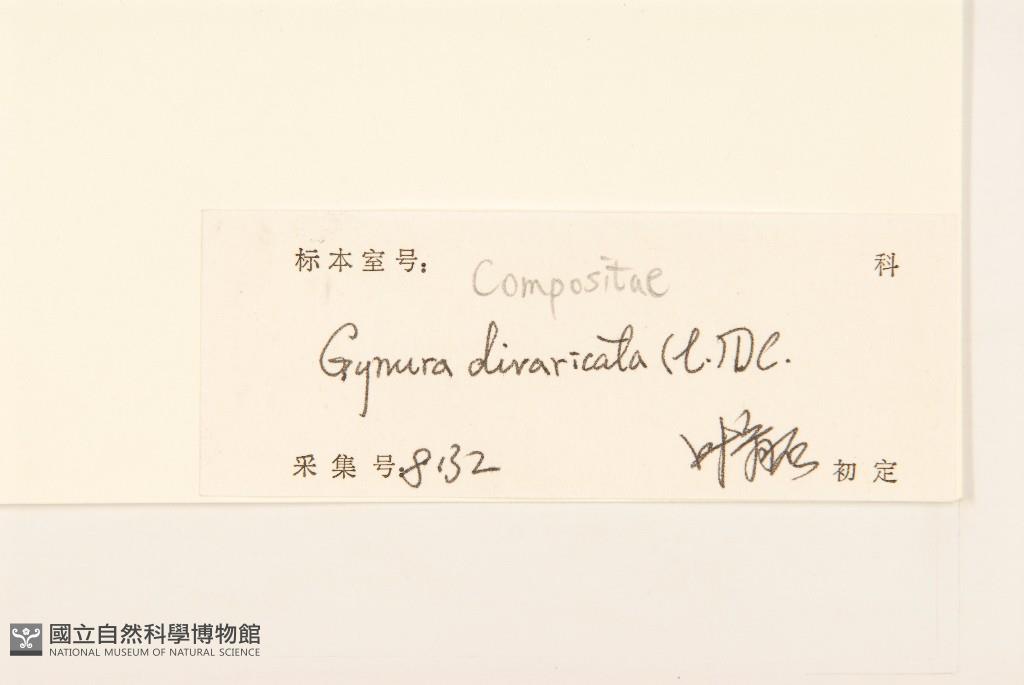 标本室号: Compositae 科
Gynura divaricata (L.) DC.
采集号: 8132 叶 初定
國立自然科學博物館
NATIONAL MUSEUM OF NATURAL SCIENCE